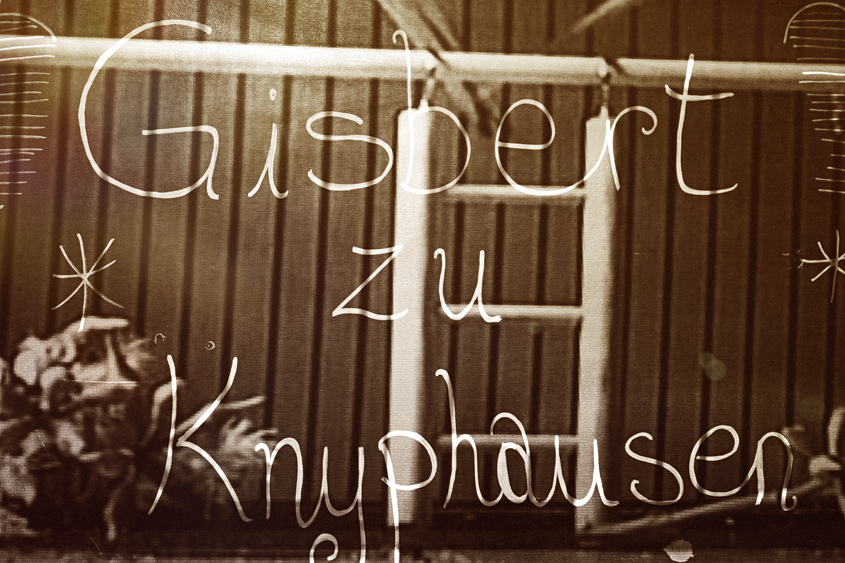 Gisbert
zu
Knyphausen